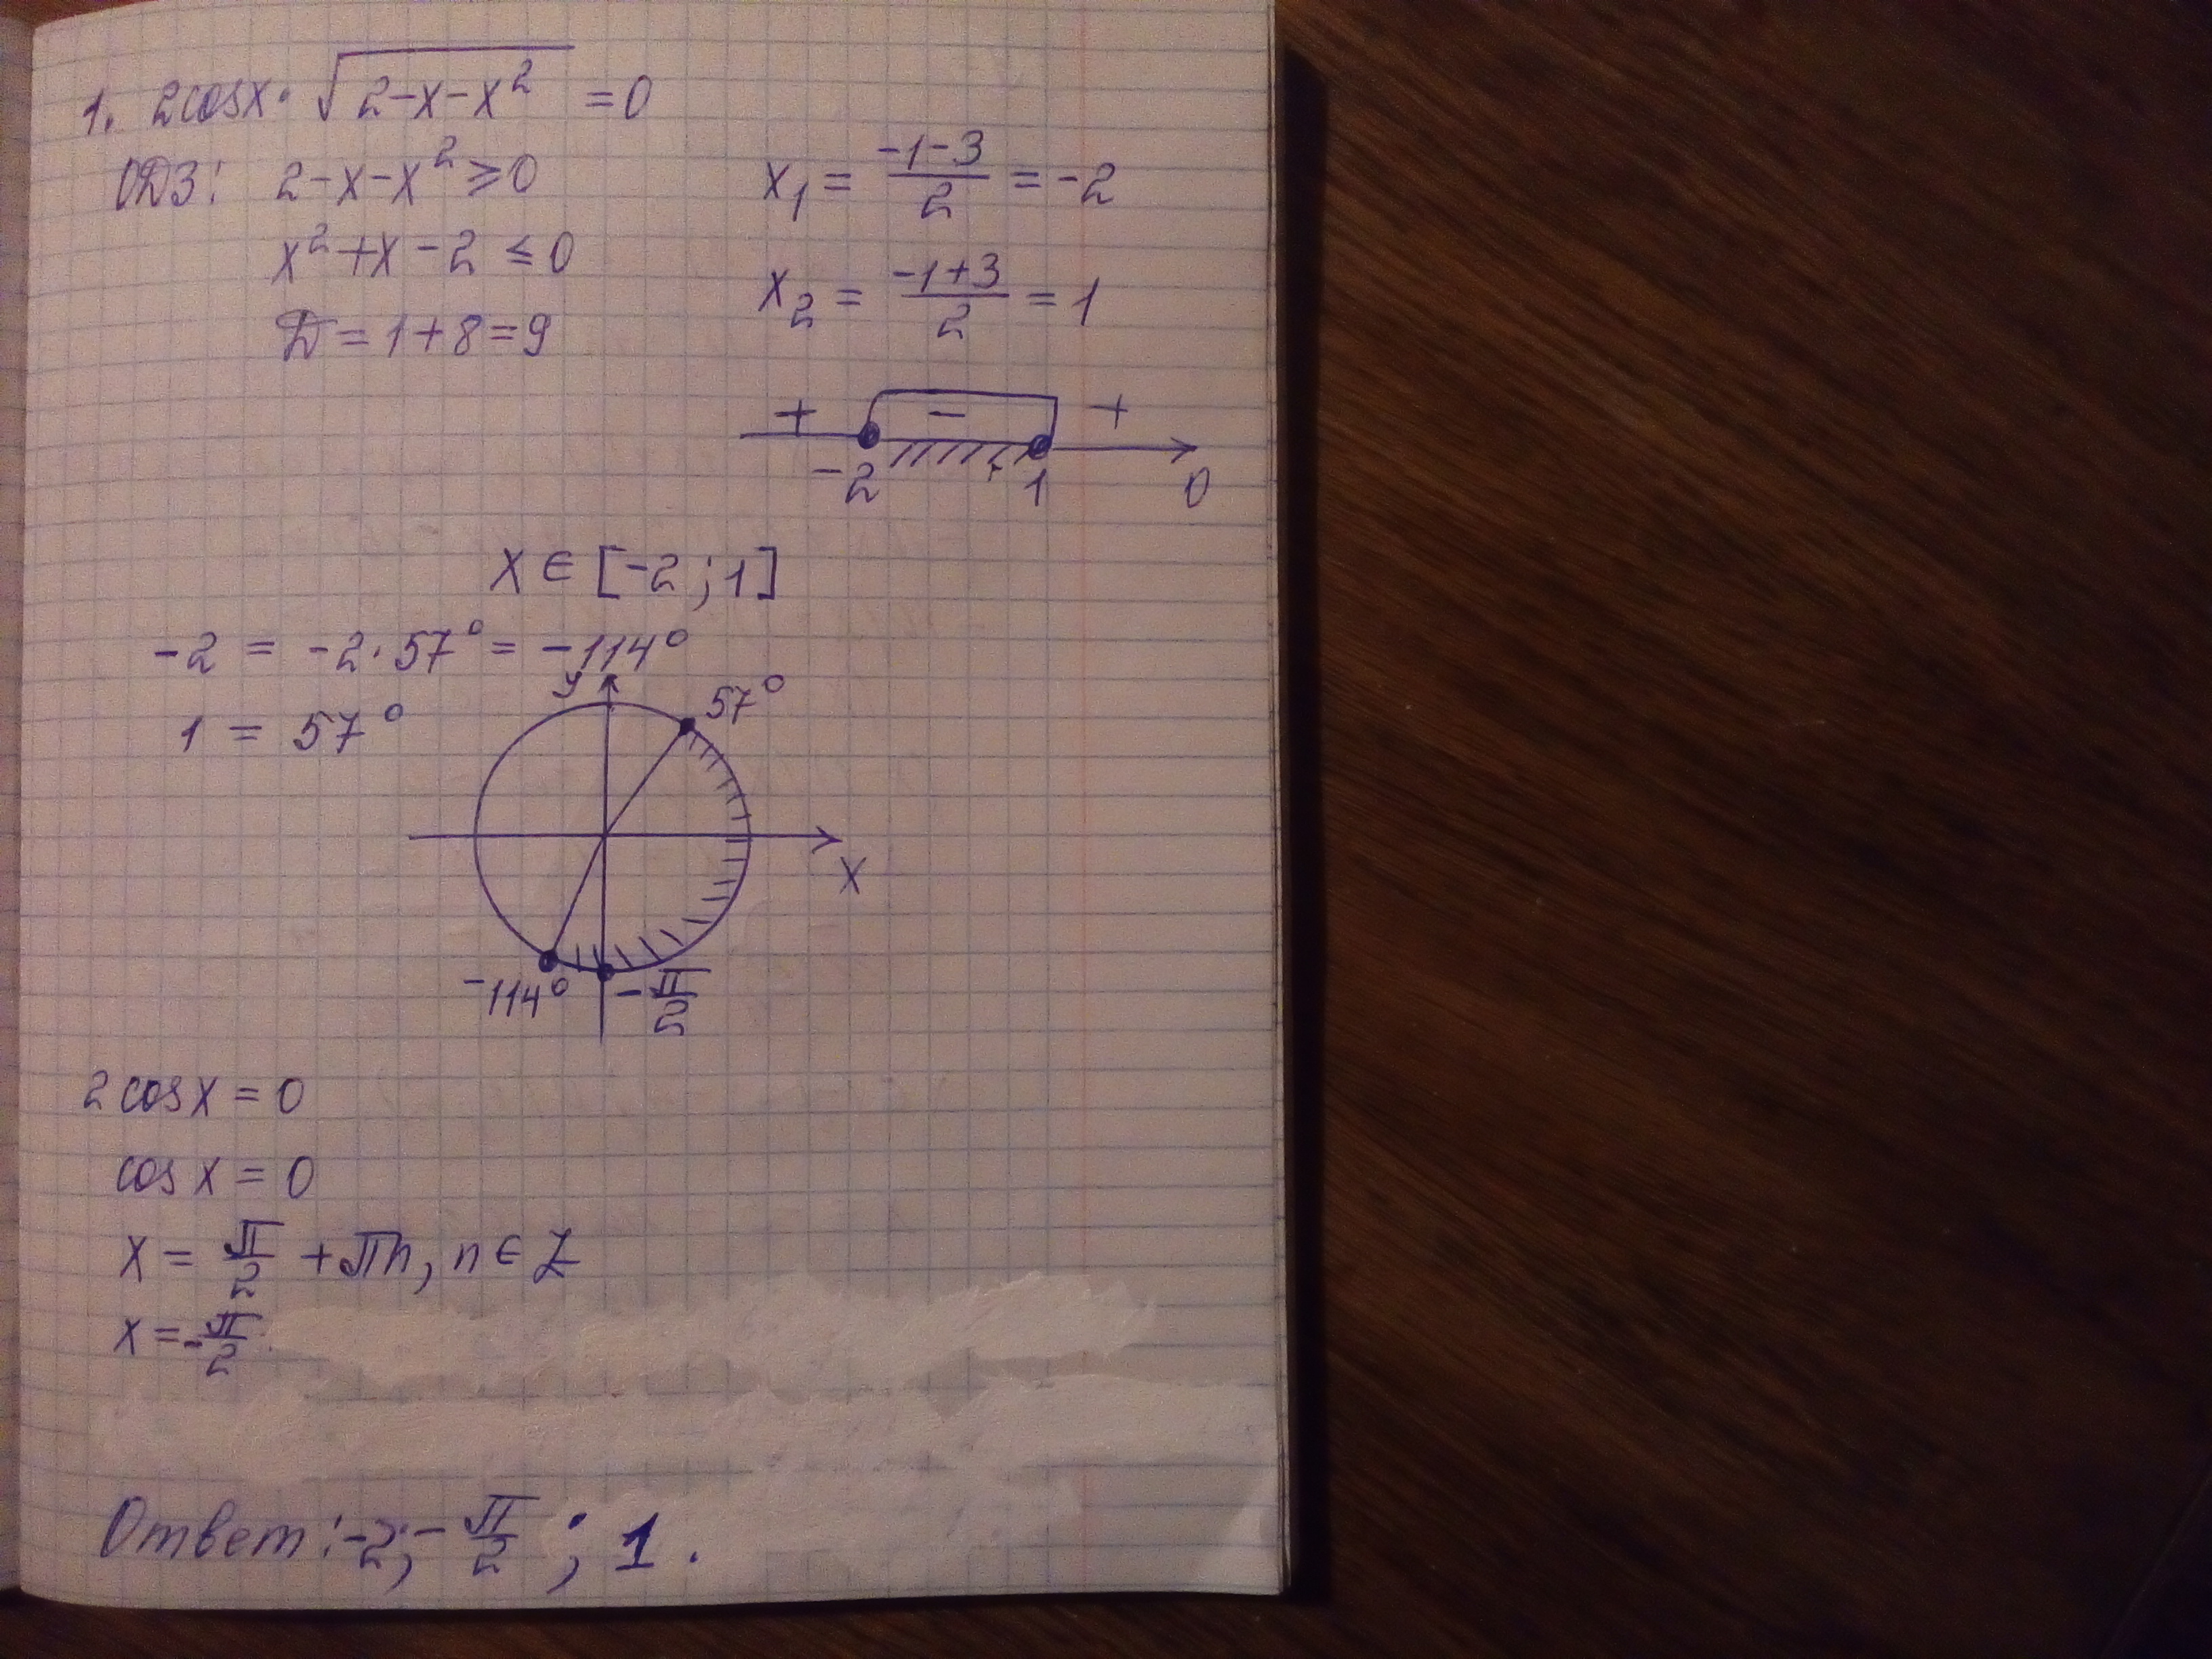 1. 2cosx · √(2-x-x²) = 0
ОДЗ: 2-x-x² ≥ 0
x² + x - 2 ≤ 0
D = 1 + 8 = 9
x₁ = (-1-3)/2 = -2
x₂ = (-1+3)/2 = 1
+ - +
-2 1 0
x ∈ [-2; 1]
-2 = -2·57° = -114°
1 = 57°
y
57°
x
-114° -π/2
2cosx = 0
cosx = 0
x = π/2 + πn, n ∈ Z
x = -π/2
Ответ: -2; -π/2 ; 1.